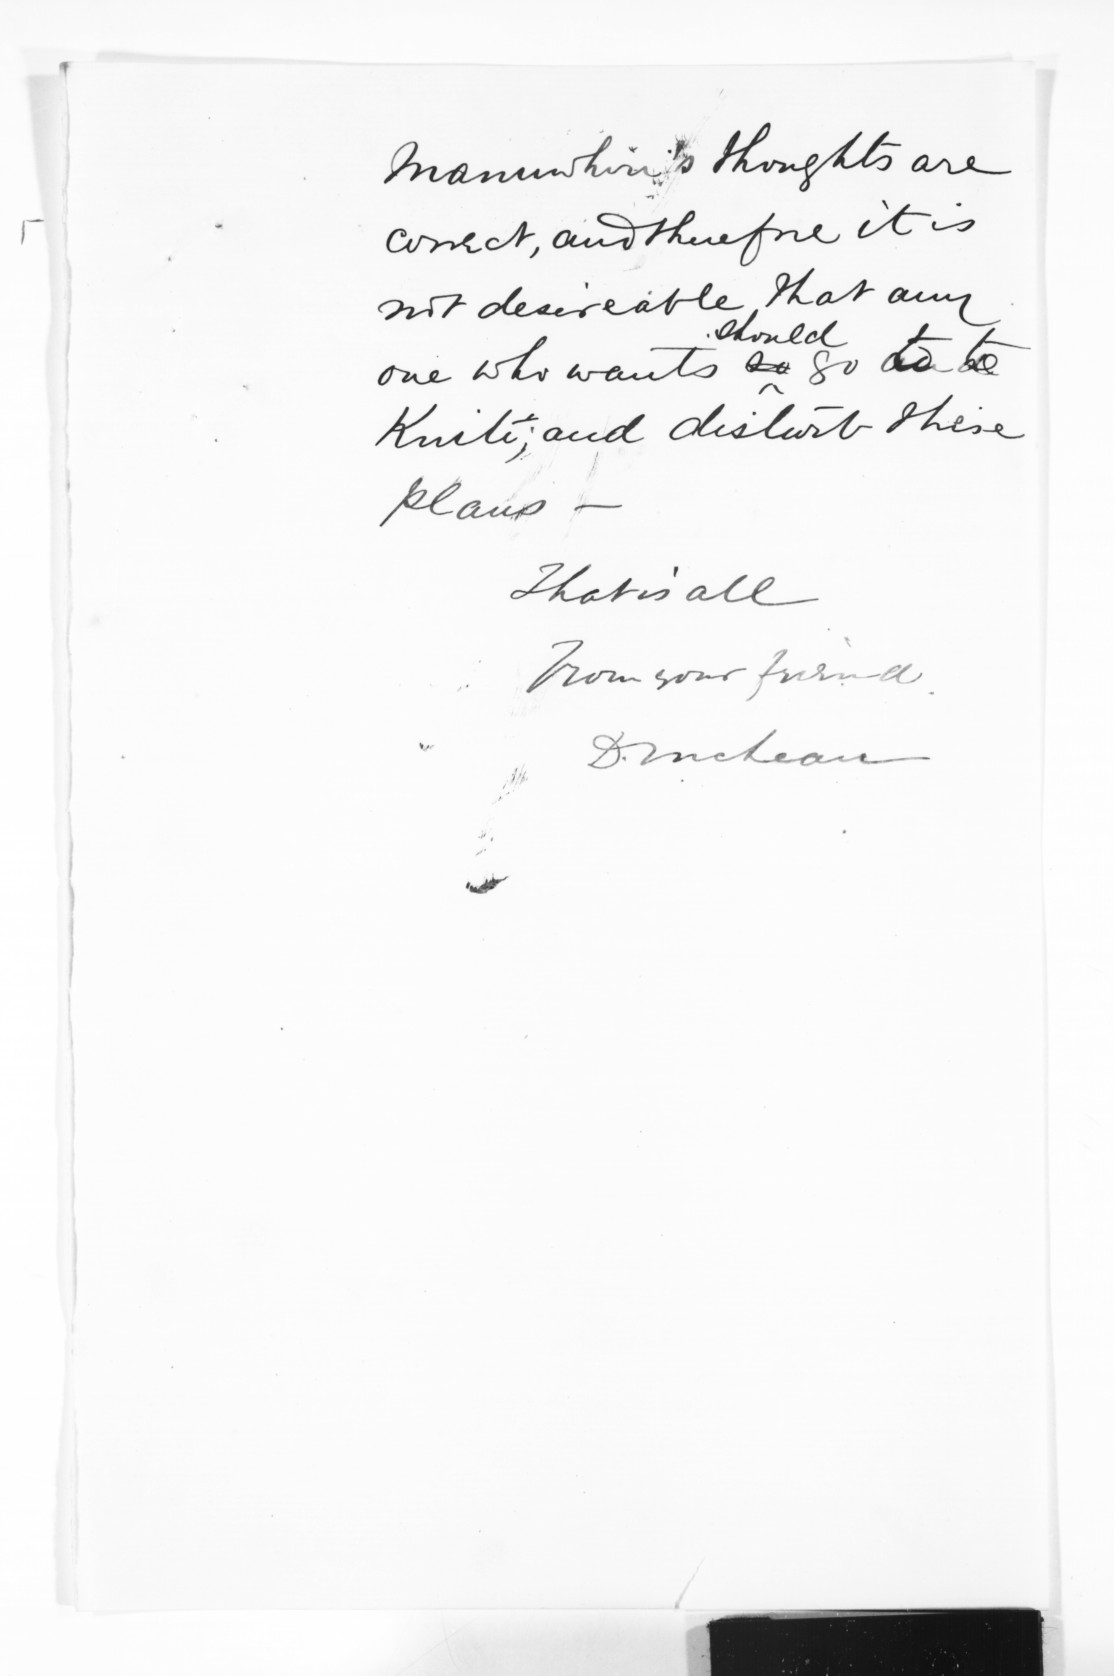 Manuwhiri's thoughts are
correct, and therefore it is
not desireable that any
should
one who wants so go to te
Kuiti; and disturb these
plans —
That is all
From your friend.
D. McLean